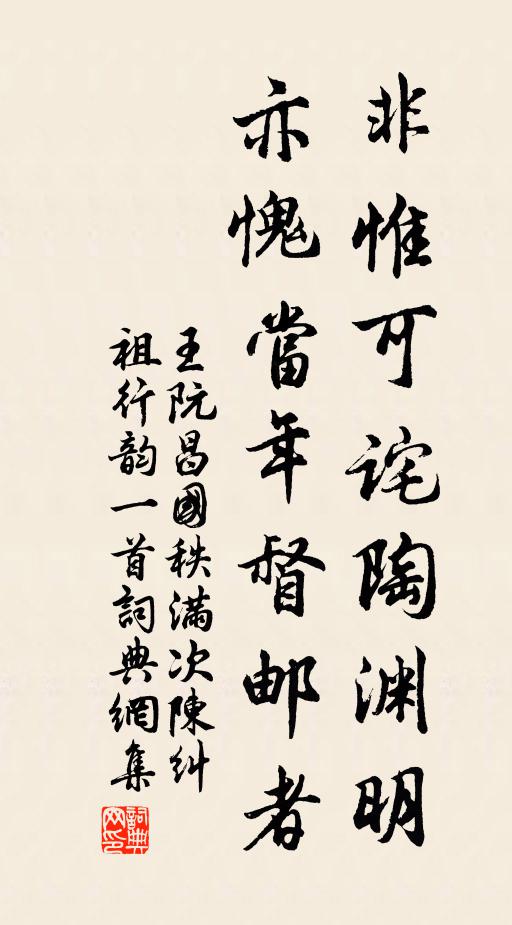 非惟可詫陶渊明
亦愧當年督邮者
王阮昌國秩滿次陳糾
祖行韵一首詞典網集
詞典网印